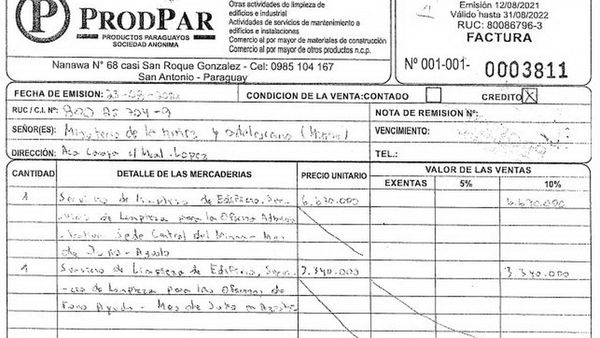 Otras actividades de limpieza de
edificios e industrial
Actividades de servicios de mantenimiento a
edificios e instalaciones
Comercio al por mayor de materiales de construcción
Comercio al por mayor de otros productos n.c.p.
P PRODPAR
PRODUCTOS PARAGUAYOS
SOCIEDAD ANONIMA
Nanawa N° 68 casi San Roque Gonzalez - Cel: 0985 104 167
San Antonio - Paraguay
Emisión 12/08/2021
Válido hasta 31/08/2022
RUC: 80086796-3
FACTURA
N° 001-001- 0003811
FECHA DE EMISION:
CONDICION DE LA VENTA:CONTADO CREDITO X
RUC / C.I. N°:
NOTA DE REMISION N°:
SEÑOR(ES): Ministerio de la niñez y adolescencia (Minna)
VENCIMIENTO:
DIRECCIÓN:
TEL.:
CANTIDAD DETALLE DE LAS MERCADERIAS PRECIO UNITARIO VALOR DE LAS VENTAS
EXENTAS 5% 10%
1 Servicio de limpieza de Edificio, Ser- 6.670.000 6.670.000
vicio de limpieza para la Oficina
Sede Central del Minna - Mes
de Julio - Agosto
1 Servicio de Limpieza de Edificio, Servi- 3.340.000 3.340.000
cio de limpieza para las Oficinas de
Fono Ayuda - Mes de Julio Agosto